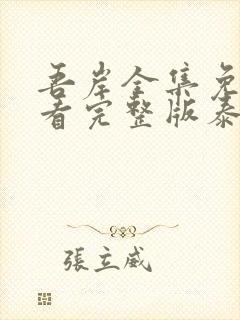 吾岸全集免
看完整版泰
張立威